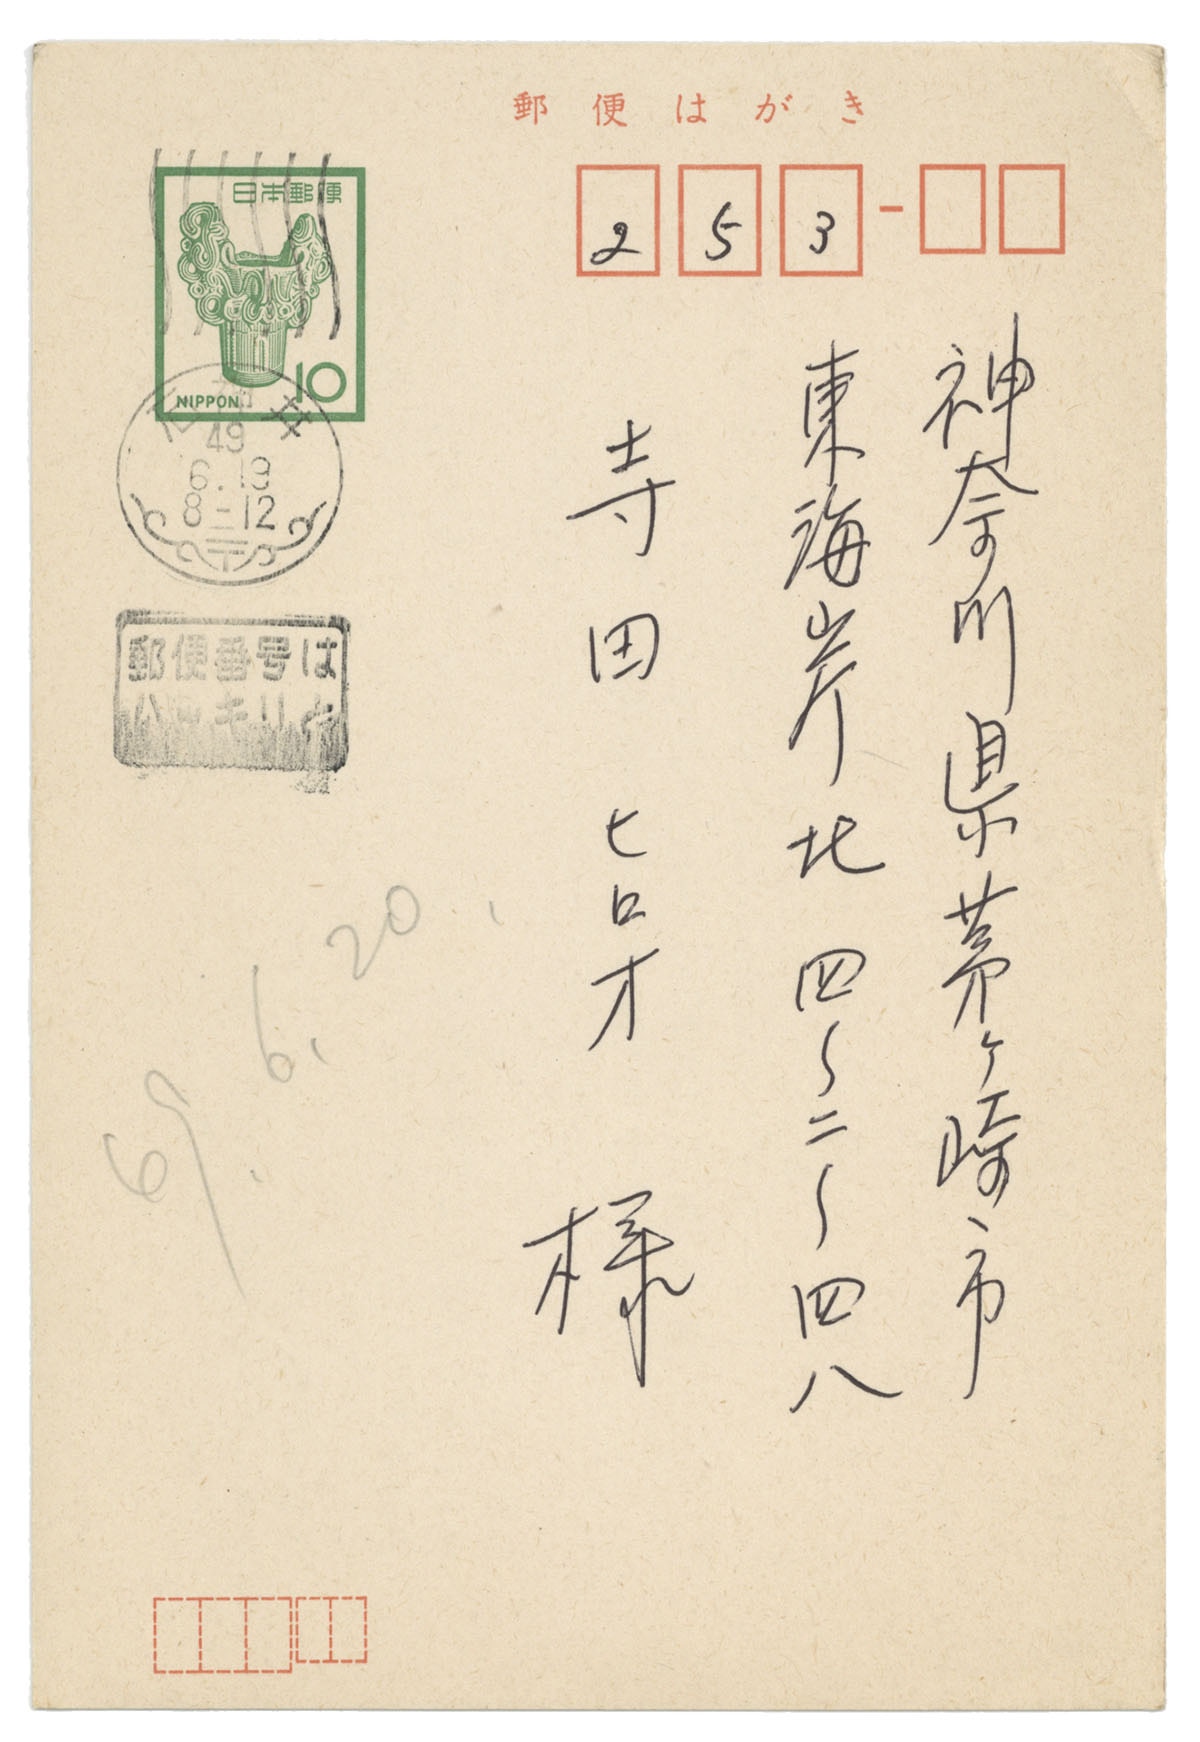 郵便はがき
253-
日本郵便
NIPPON 10
49
6.19
8-12
郵便番号は
ハッキリと
神奈川県茅ヶ崎市
東海岸北四〜二〜四八
寺田ヒロオ様
69.6.20.